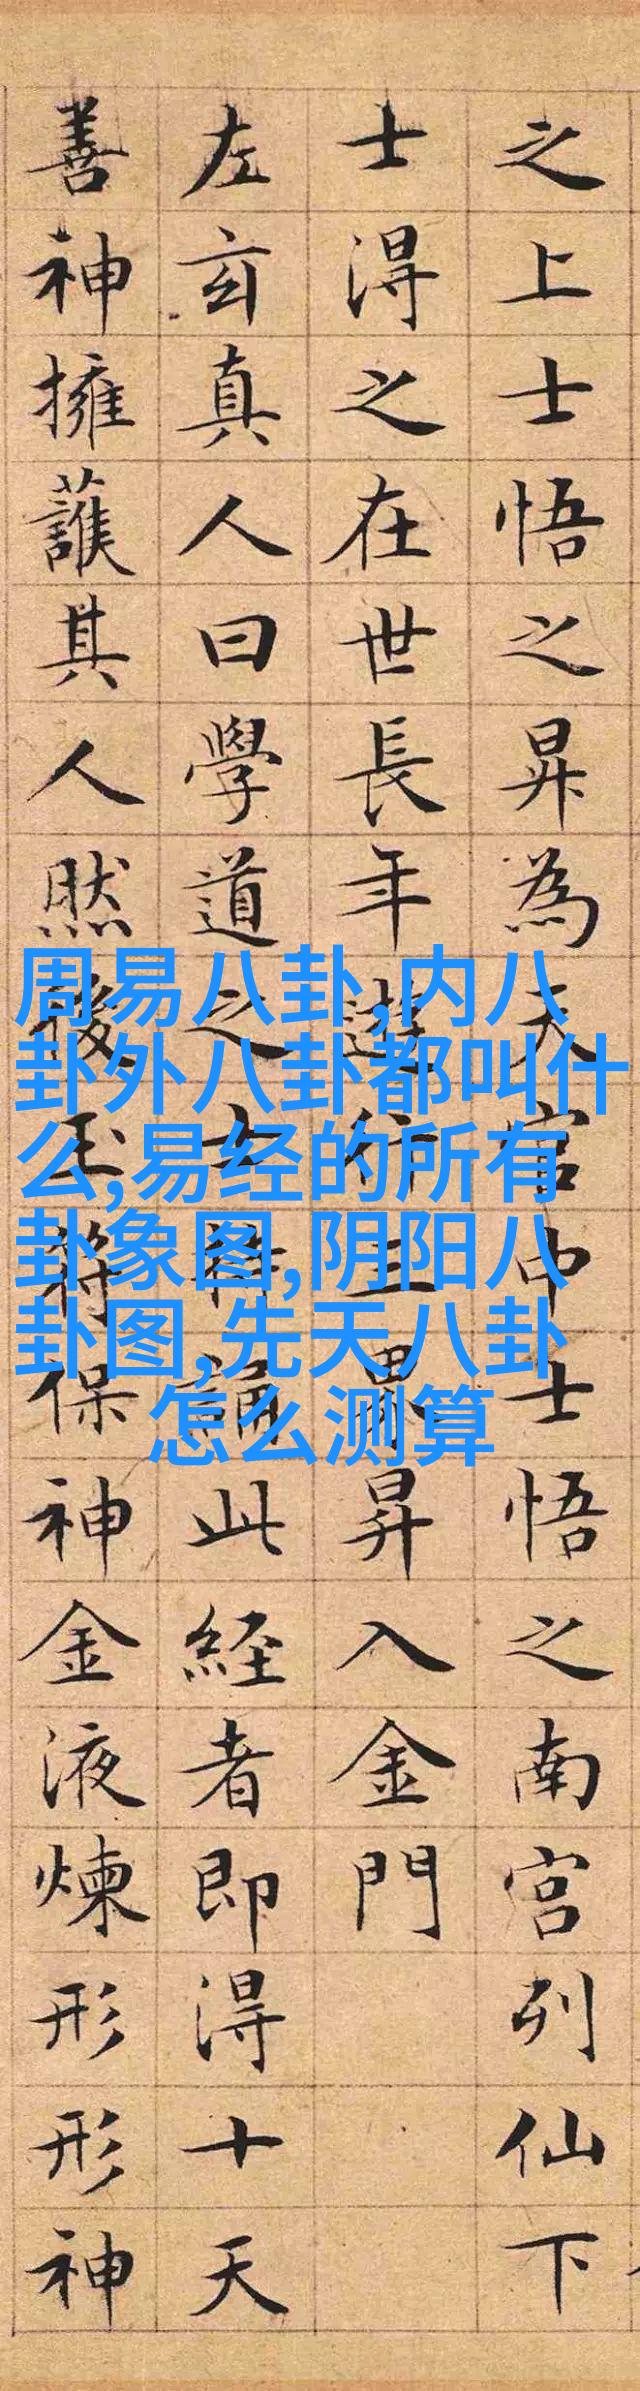 之上士悟之昇為天官中士悟之南宮列仙下
士得之在世長年遊行三界昇入金門
左玄真人曰學道之士持誦此經者即得十天
善神擁護其人然後玉符保神金液煉形形神
周易八卦,内八
卦外八卦都叫什
么,易经的所有
卦象图,阴阳八
卦图,先天八卦
怎么测算